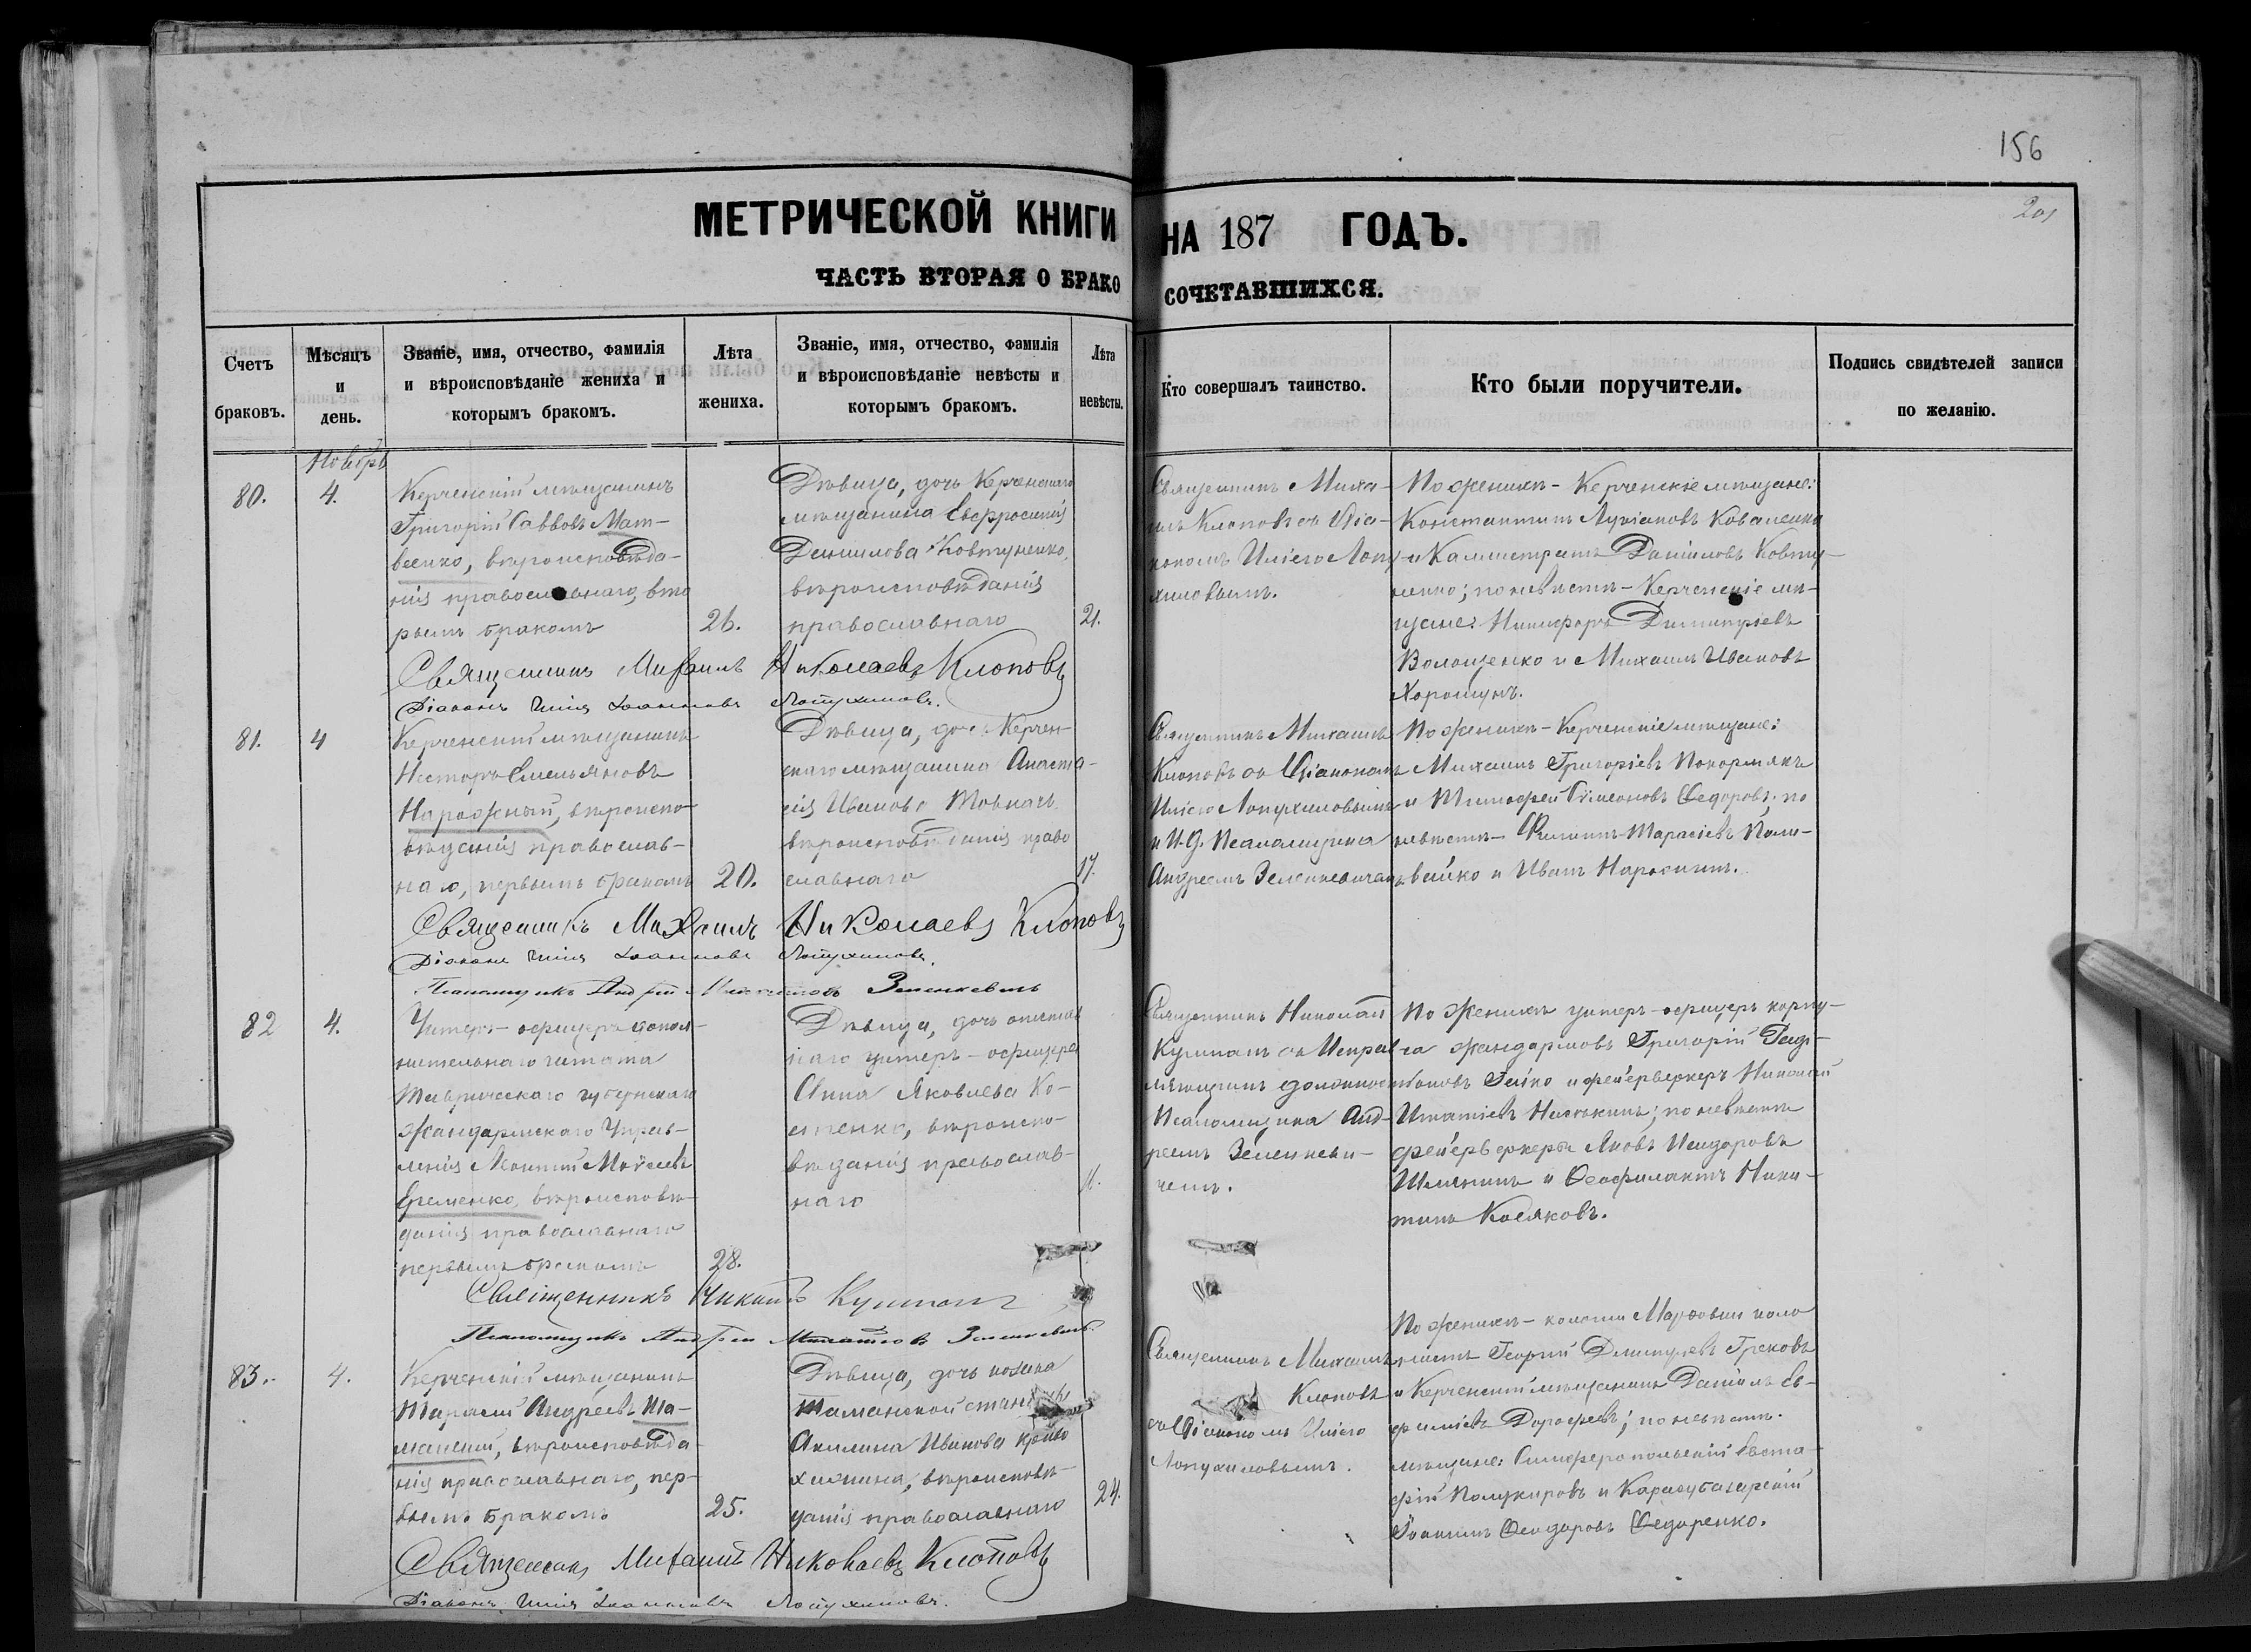 156
201
МЕТРИЧЕСКОЙ КНИГИ НА 187 ГОДЪ.
ЧАСТЬ ВТОРАЯ О БРАКОСОЧЕТАВШИХСЯ.
Счетъ браковъ.
Мѣсяцъ и день.
Званіе, имя, отчество, фамилія
и вѣроисповѣданіе жениха и
которымъ бракомъ.
Лѣта жениха.
Званіе, имя, отчество, фамилія
и вѣроисповѣданіе невѣсты и
которымъ бракомъ.
Лѣта невѣсты.
Кто совершалъ таинство.
Кто были поручители.
Подпись свидѣтелей записи
по желанію.
Ноябрь
80.
4.
Керченскій мѣщанинъ
Григорій Саввовъ Мат-
веенко, вѣроисповѣда-
нія православнаго, вто
рымъ бракомъ
26.
Дѣвица, дочь Керченскаго
мѣщанина Евфросинія
Даниилова Ковтуненко,
вѣроисповѣданія
православнаго
21.
Священникъ Миха-
илъ Клоповъ съ Діа-
кономъ Иліею Лопу-
хиновымъ.
По женихѣ - Керченскіе мѣщане:
Константинъ Лукіановъ Коваленко
и Каллистратъ Даніиловъ Ковту-
ненко; по невѣстѣ - Керченскіе мѣ-
щане: Никифоръ Димитріевъ
Волощенко и Михаилъ Ивановъ
Хорошунъ.
Священникъ Михаилъ Николаевъ Клоповъ
Діаконъ Илія Іоанновъ Лопухиновъ.
81.
4
Керченскій мѣщанинъ
Несторъ Емельяновъ
Нарожный, вѣроиспо-
вѣданія православ-
наго, первымъ бракомъ
20.
Дѣвица, дочь Керчен-
скаго мѣщанина Анаста-
сія Иванова Товкачъ
вѣроисповѣданія право
славнаго
17.
Священникъ Михаилъ
Клоповъ съ Діакономъ
Иліею Лопухиновымъ
и И.д. Псаломщика
Андреемъ Зеленкевичемъ
По женихѣ - Керченскіе мѣщане:
Михаилъ Григоріевъ Покормякъ
и Тимофей Симеоновъ Федоровъ; по
невѣстѣ - Филиппъ Тарасіевъ Пали-
вайко и Иванъ Нарожный.
Священникъ Михаилъ Николаевъ Клоповъ
Діаконъ Илія Іоанновъ Лопухиновъ.
Псаломщикъ Андрей Зеленкевичъ
82
4.
Унтеръ-офицеръ допол-
нительнаго штата
Таврическаго губернскаго
жандармскаго Управ-
ленія Леонтій Моѵсеевъ
Еременко, вѣроисповѣ-
данія православнаго
первымъ бракомъ
28.
Дѣвица, дочь отстав
наго унтеръ-офицера
Анна Яковлева Ко-
стенко, вѣроиспо-
вѣданія православ-
наго
Священникъ Николай
Кушталъ съ Исправ-
ляющимъ должность
Псаломщика Анд-
реемъ Зеленкеви-
чемъ.
По женихѣ унтеръ-офицеръ корпу-
са жандармовъ Григорій
Гейко и фейерверкеръ Николай
Игнатіевъ; по невѣстѣ
фейерверкеры Яковъ Исидоровъ
и Феофилактъ Ники-
тинъ Косяковъ.
Священникъ Никол. Кушталъ
Псаломщикъ Андрей Зеленкевичъ.
83.
4.
Керченскій мѣщанинъ
Тарасій Андреевъ Та-
манскій, вѣроисповѣда
нія православнаго, пер-
вымъ бракомъ
25.
Дѣвица, дочь козака
Таманской станицы
Акилина Иванова Криво
хижина, вѣроисповѣ-
данія православнаго
24.
Священникъ Михаилъ
Клоповъ
съ Діакономъ Иліею
Лопухиновымъ.
По женихѣ - колоніи Марфовки коло
нистъ Георгій Димитріевъ Грековъ
и Керченскій мѣщанинъ Даніилъ Ев-
фиміевъ Дорофеевъ; по невѣстѣ.
мѣщане: Симферопольскій Евста-
фій и Карасубазарскій
Іоаннъ Феодоровъ Федоренко.
Священникъ Михаилъ Николаевъ Клоповъ
Діаконъ Илія Іоанновъ Лопухиновъ.